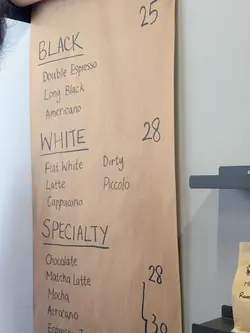 BLACK 25
Double Espresso
Long Black
Americano
WHITE 28
Flat White Dirty
Latte Piccolo
Cappucino
SPECIALTY
Chocolate 28
Matcha Latte
Mocha
Aerocano 30
Espresso T